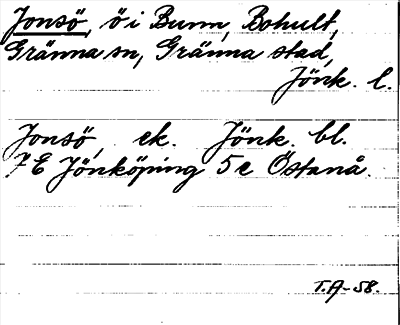 Jonsö, ö i Bunn, Bohult,
Gränna sn, Gränna stad,
Jönk. l.
Jonsö, ek. Jönk. bl.
7E Jönköping 5e Östanå.
T.A-58.